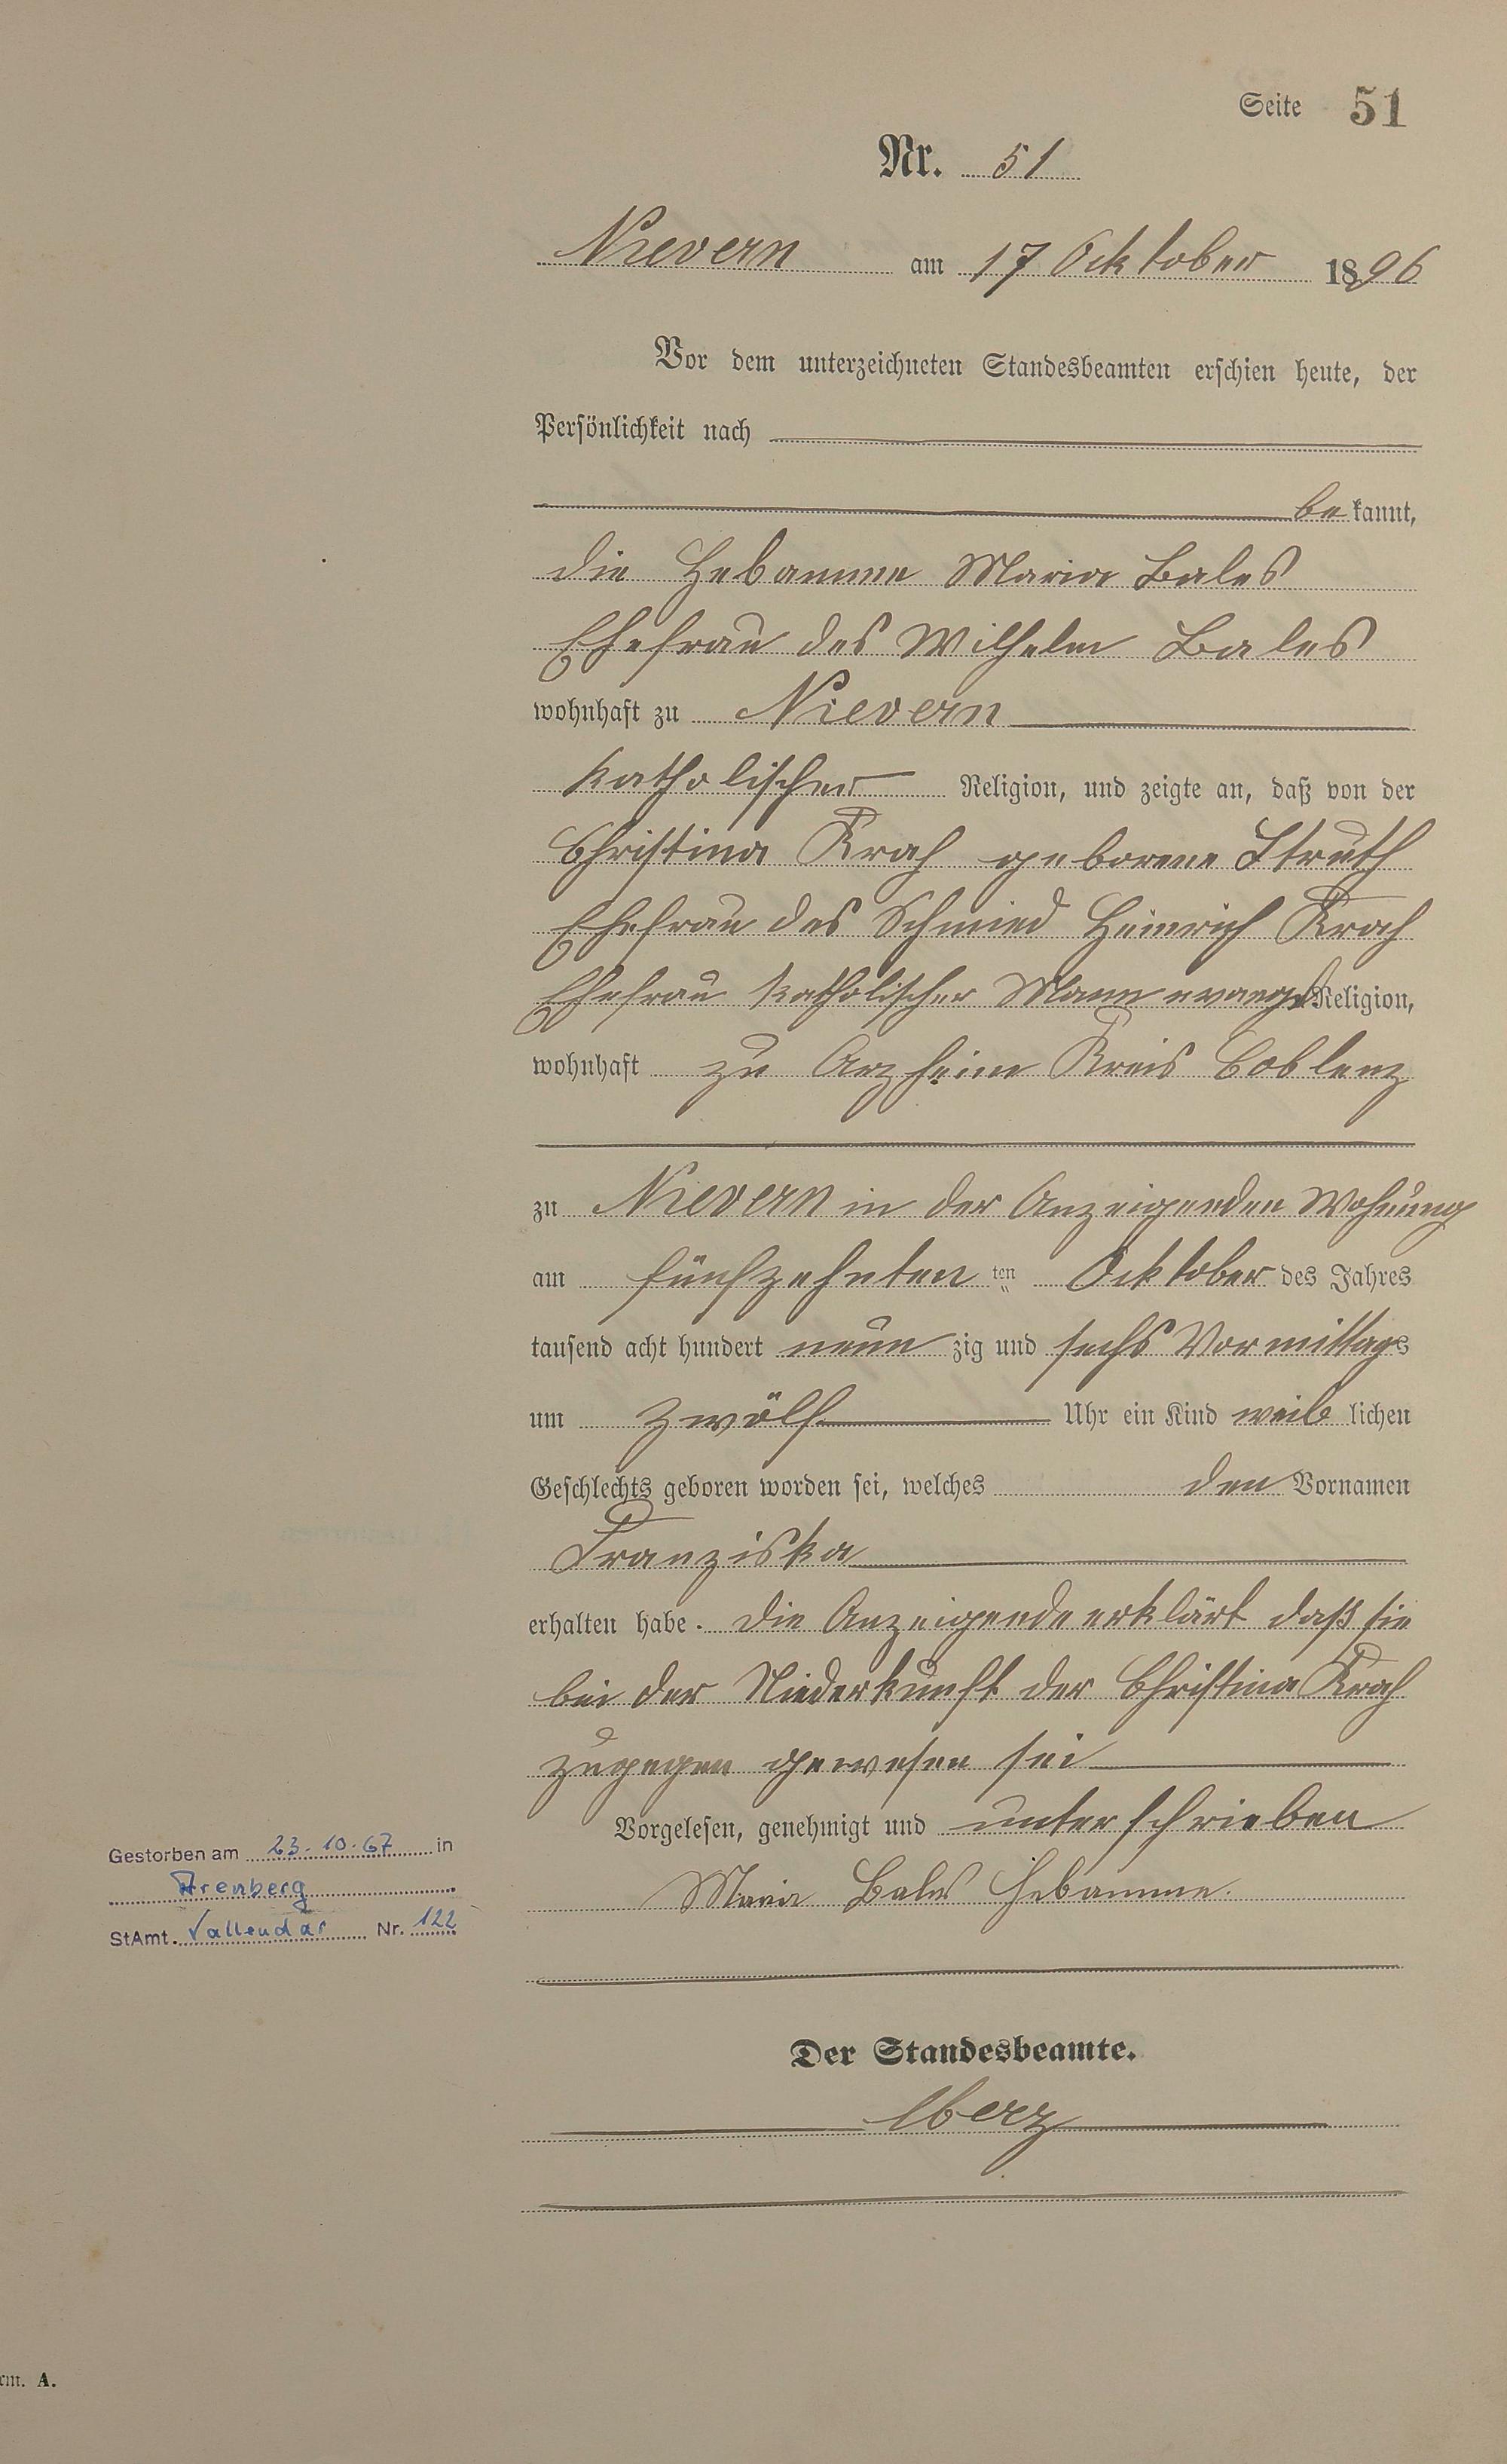 Seite 51
Nr. 51
Nievern am 17 Ocktober 1896
Vor dem unterzeichneten Standesbeamten erschien heute, der
Persönlichkeit nach
be kannt,
die Hebamme Maria Bales
Ehefrau des Wilhelm Bales
wohnhaft zu Nievern
katholischer Religion, und zeigte an, daß von der
Christina Krah geborene Struth
Ehefrau des Schmied Heinrich Krah
Ehefrau katholischer Mann evangl Religion,
wohnhaft zu Arzheim Kreis Coblenz
zu Nievern in der Anzeigenden Wohnung
am fünfzehnten ten Ocktober des Jahres
tausend acht hundert neun zig und sechs Vormittags
um zwölf Uhr ein Kind weib lichen
Geschlechts geboren worden sei, welches den Vornamen
Franziska
erhalten habe. die Anzeigende erklärt daß sie
bei der Niederkunft der Christina Krah
zugegen gewesen sei
Vorgelesen, genehmigt und unterschrieben
Maria Bales Hebamme.
Gestorben am 23.10.67 in
Arenberg
StAmt. Vallendar Nr. 122
Der Standesbeamte.
rm. A.